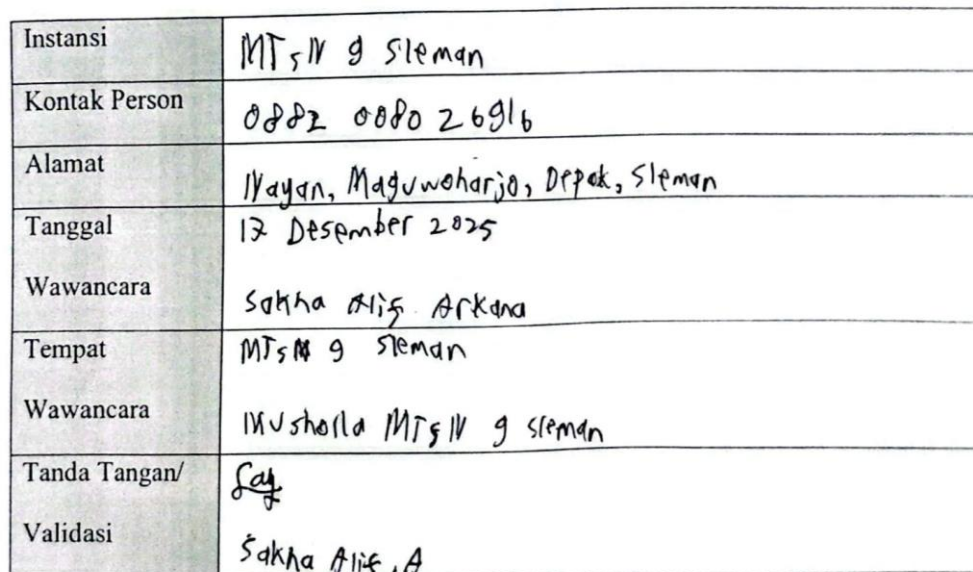 Instansi
MTsN 9 Sleman
Kontak Person
0882 0080 26916
Alamat
Nayan, Maguwoharjo, Depok, Sleman
Tanggal
Desember 2025
Wawancara
Sakha Alif Arkana
Tempat
MTsN 9 Sleman
Wawancara
Musholla MTsN 9 Sleman
Tanda Tangan/
Validasi
Sakha Alif .A